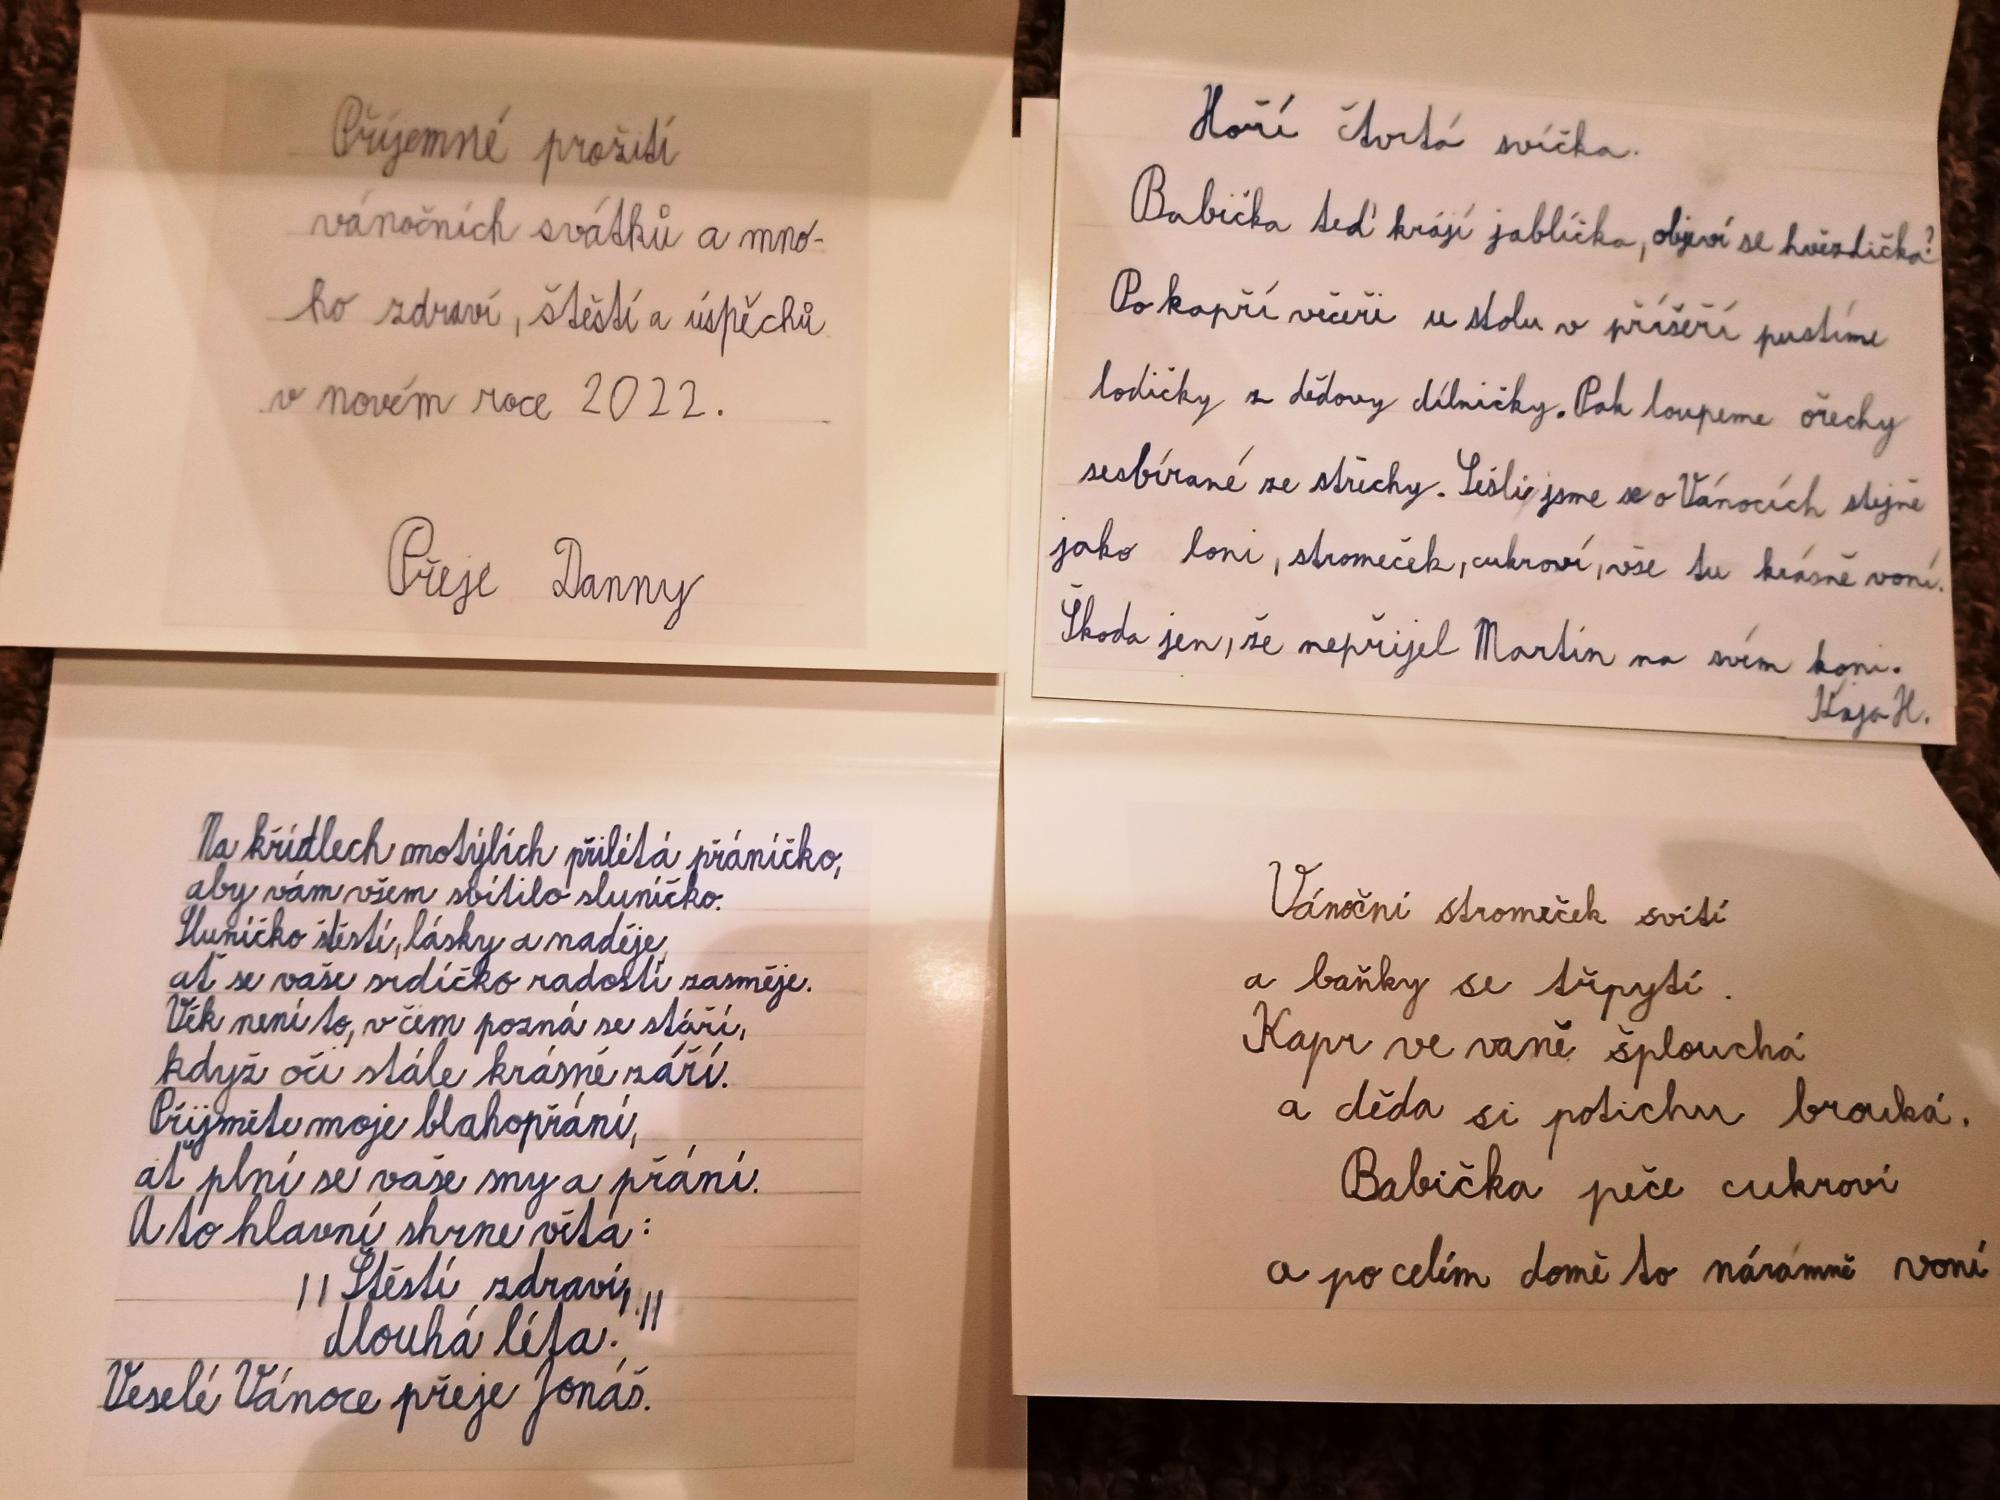 Příjemné prožití
vánočních svátků a mno-
ho zdraví, štěstí a úspěchů
v novém roce 2022.
Přeje Danny
Hoří čtvrtá svíčka.
Babička teď krájí jablíčka, objeví se hvězdička?
Po kapří večeři u stolu v příšeří pustíme
lodičky z dědovy dílničky. Pak loupeme ořechy
sesbírané ze střechy. Sešli jsme se o Vánocích stejně
jako loni, stromeček, cukroví, vše tu krásně voní.
Škoda jen, že nepřijel Martin na svém koni.
Kája H.
Na křídlech motýlích přilétá přáníčko,
aby vám všem svítilo sluníčko.
Sluníčko štěstí, lásky a naděje,
ať se vaše srdíčko radostí zasměje.
Věk není to, v čem pozná se stáří,
když oči stále krásně září.
Přijměte moje blahopřání,
ať plní se vaše sny a přání.
A to hlavní shrne věta:
"Štěstí zdraví,
dlouhá léta."
Veselé Vánoce přeje Jonáš.
Vánoční stromeček svítí
a baňky se třpytí.
Kapr ve vaně šplouchá
a děda si potichu brouká.
Babička peče cukroví
a po celém domě to náramně voní